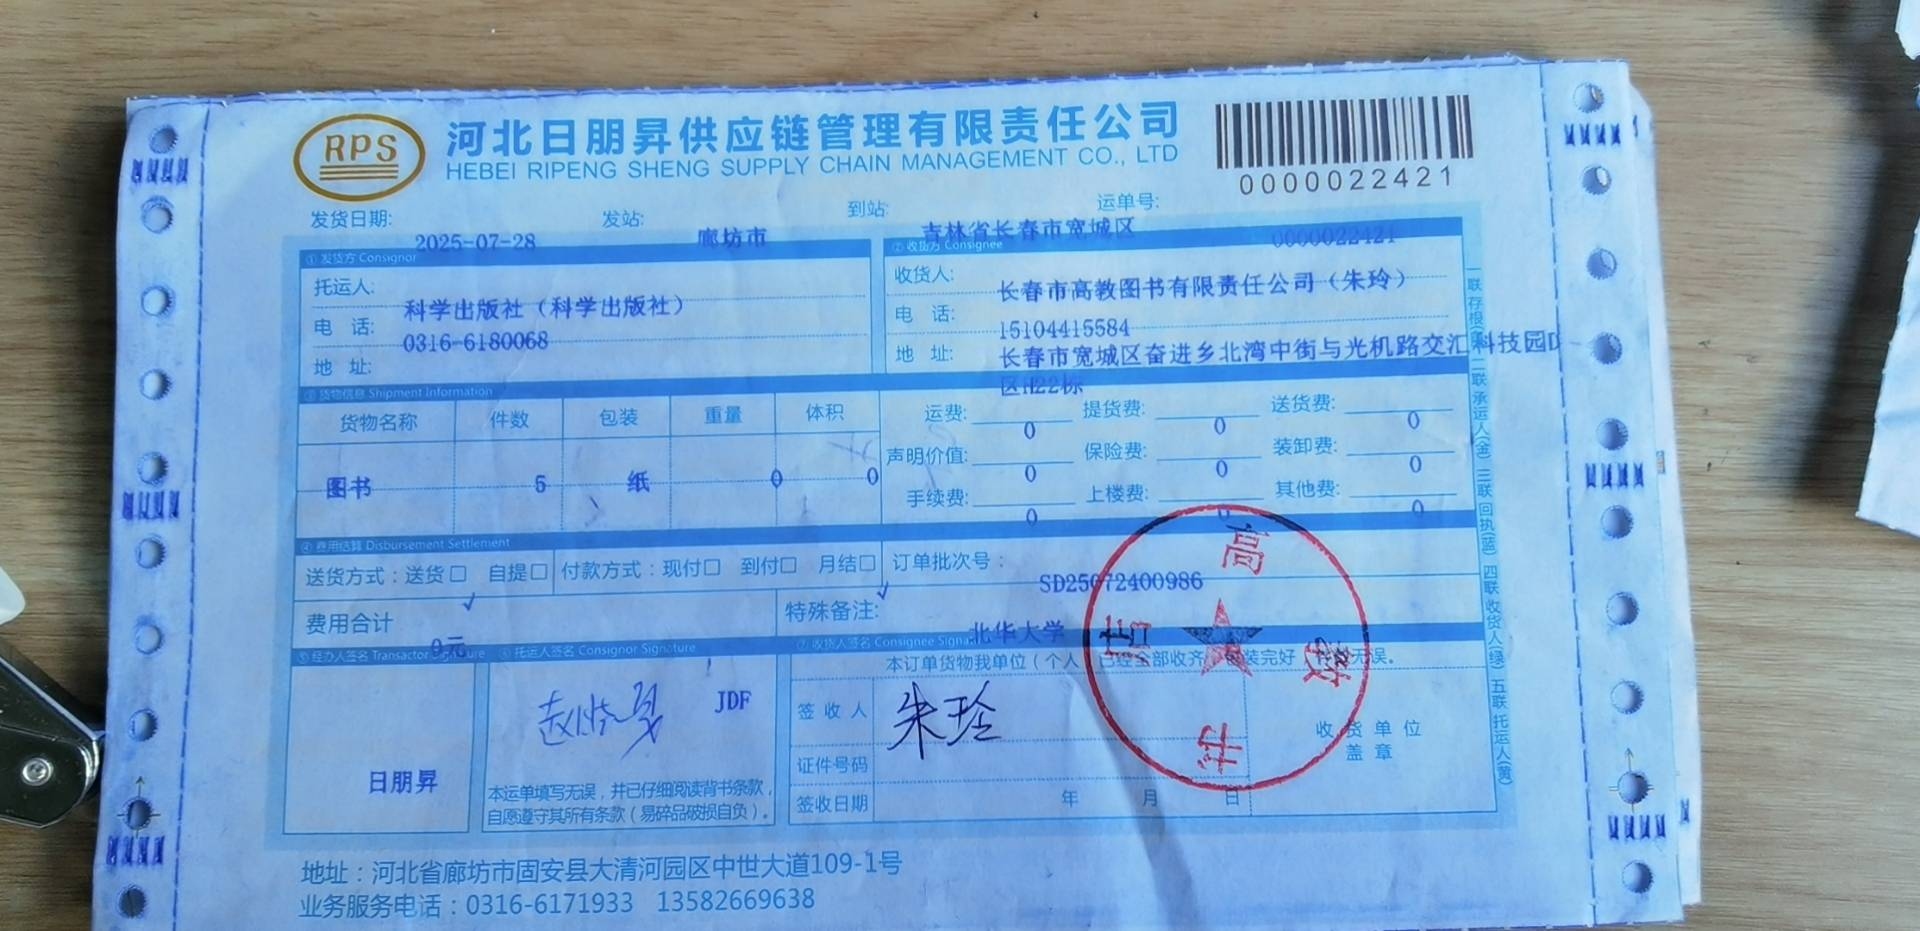 RPS
河北日朋昇供应链管理有限责任公司
HEBEI RIPENG SHENG SUPPLY CHAIN MANAGEMENT CO., LTD
0000022421
发货日期: 2025-07-28 发站: 廊坊市 到站: 吉林省长春市宽城区 运单号: 0000022421
① 发货方 Consignor
托运人: 科学出版社（科学出版社）
电 话: 0316-6180068
地 址:
② 收货方 Consignee
收货人: 长春市高教图书有限责任公司（朱玲）
电 话: 15104415584
地 址: 长春市宽城区奋进乡北湾中街与光机路交汇科技园
③ 货物信息 Shipment Information
货物名称 件数 包装 重量 体积
图书 5 纸 0 0
运费: 0 提货费: 0 送货费: 0
声明价值: 0 保险费: 0 装卸费: 0
手续费: 0 上楼费: 0 其他费: 0
④ 费用结算 Disbursement Settlement
送货方式：送货□ 自提□ ✓ 付款方式：现付□ 到付□ 月结□ ✓
订单批次号： SD25072400986
费用合计 0元
特殊备注: 北华大学
⑤ 经办人签名 Transactor Signature
日朋昇
托运人签名 Consignor Signature
JDF
本运单填写无误，并已仔细阅读背书条款，
自愿遵守其所有条款（易碎品破损自负）。
⑦ 收货人签名 Consignee
本订单货物我单位（个人
已经全部收齐
无误。
签 收 人 朱玲
证件号码
签收日期 年 月 日
收 货 单 位
盖 章
高
教
书
店
一联存根
二联 承运人(金) 三联 回执(蓝) 四联 收货人(绿) 五联 托运人(黄)
地址：河北省廊坊市固安县大清河园区中世大道109-1号
业务服务电话：0316-6171933 13582669638